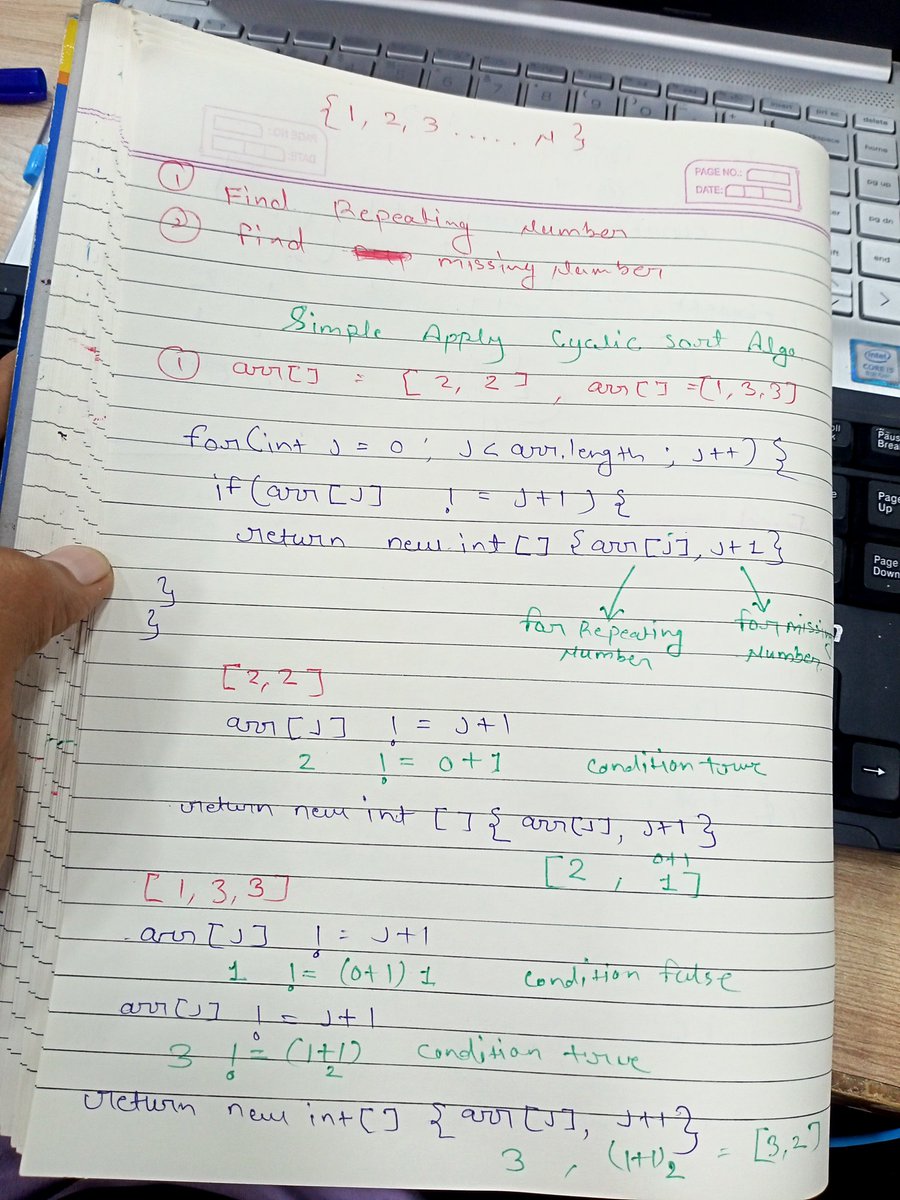 {1, 2, 3 ..... N}
PAGE NO.:
DATE:
① Find Repeating Number
② find missing Number
Simple Apply Cyclic Sort Algo
① arr[] = [2, 2], arr[] = [1, 3, 3]
for(int j = 0; j < arr.length; j++) {
if(arr[j] != j+1) {
return new int[] {arr[j], j+1}
}
}
for Repeating Number
for missing Number
[2,2]
arr[j] != j+1
2 != 0+1 condition true
return new int [] { arr[j], j+1 }
[2, 0+1 1]
[1, 3, 3]
arr[j] != j+1
1 != (0+1) 1 condition false
arr[j] != j+1
3 != (1+1) 2 condition true
return new int[] {arr[j], j++}
3, (1+1) 2 = [3,2]
intel
CORE i5
insert
prt sc
delete
home
pg up
pg dn
end
Page Up
Page Down